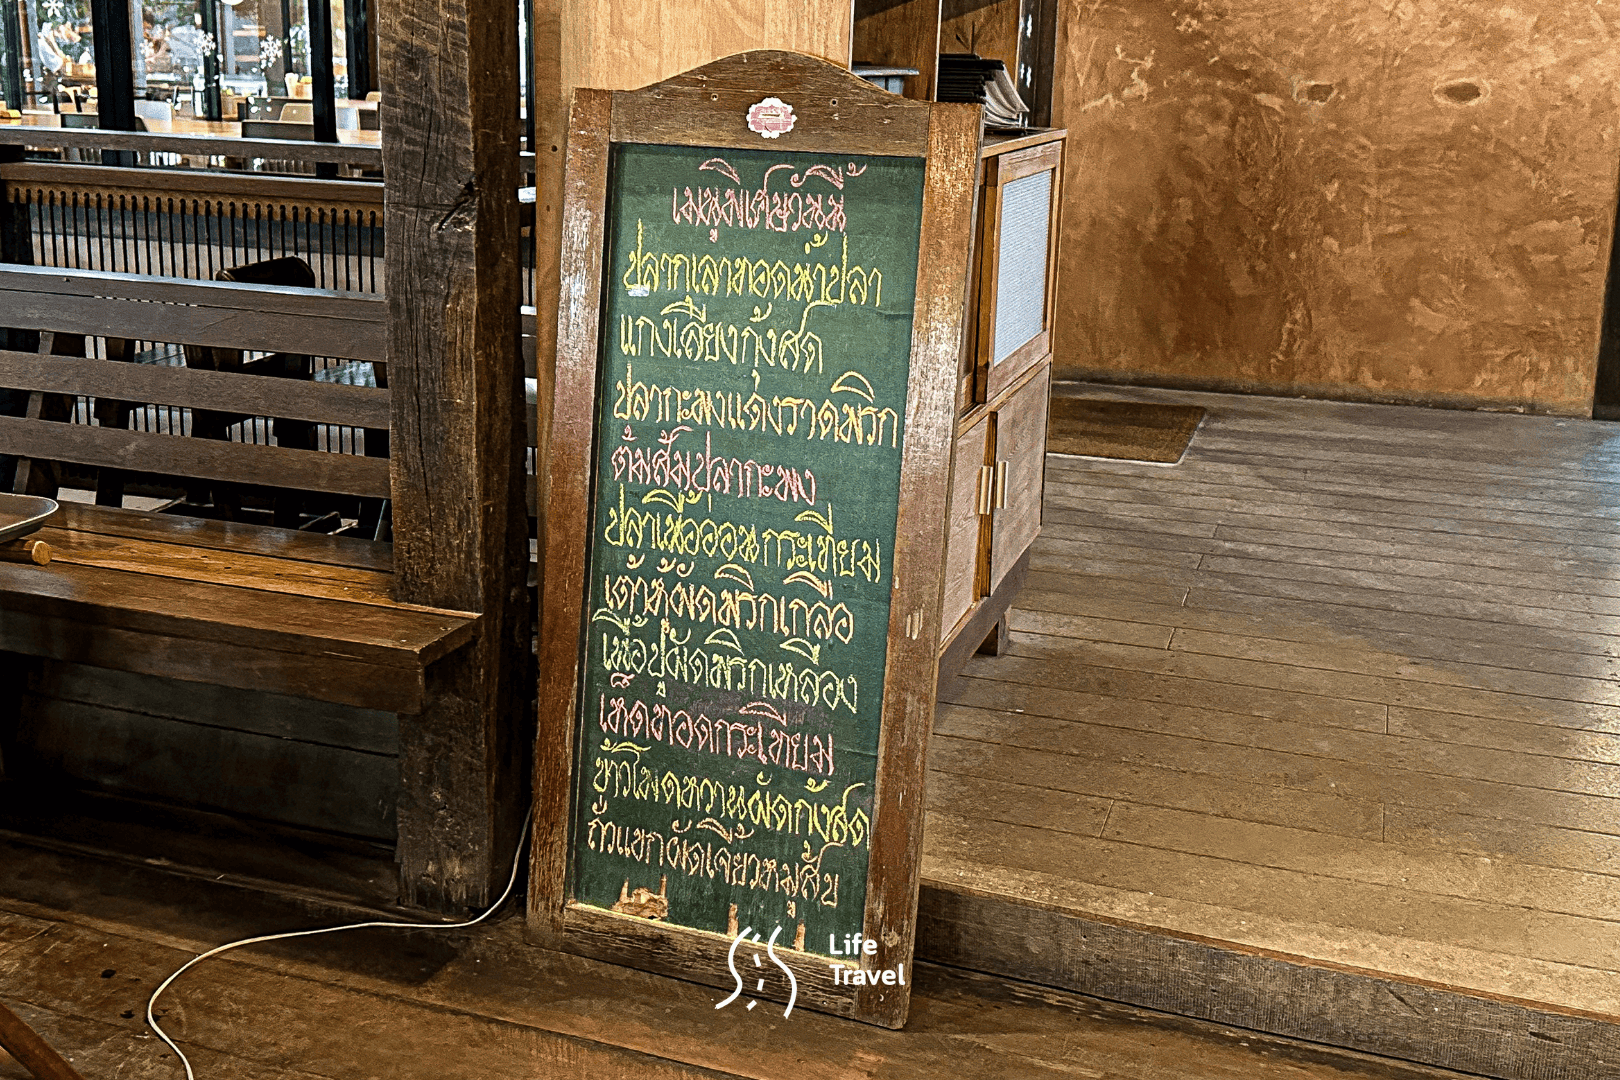 เมนูพิเศษวันนี้
ปลากุเลาทอดน้ำปลา
แกงเลียงกุ้งสด
ปลากะพงแดงราดพริก
ต้มส้มปลากะพง
ปลาเนื้ออ่อนกระเทียม
เต้าหู้ผัดพริกเกลือ
เนื้อปูผัดพริกเหลือง
เห็ดทอดกระเทียม
ข้าวโพดหวานผัดกุ้งสด
ถั่วแขกผัดเจี้ยวหมูสับ
Life
Travel